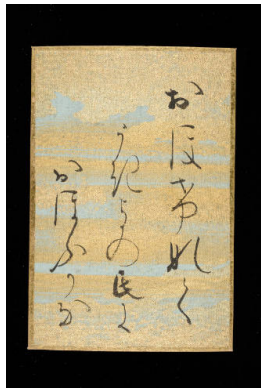 おほけなく
うきよの民に
おほふかな